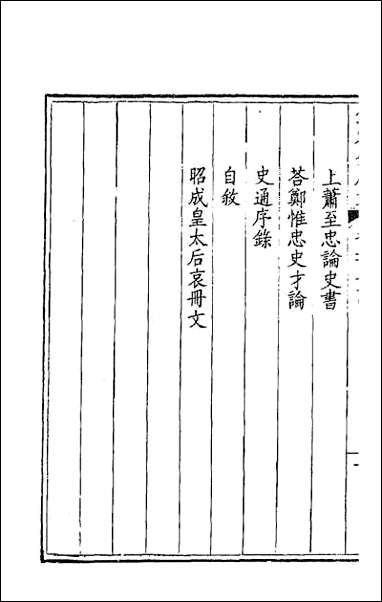 上蕭至忠論史書
荅鄭惟忠史才論
史通序錄
自敘
昭成皇太后哀冊文